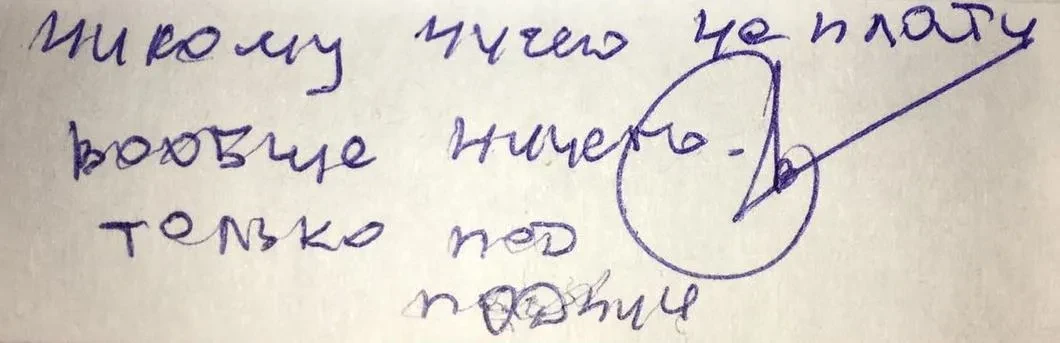 никому ничего не плату
вообще ничего -
только под